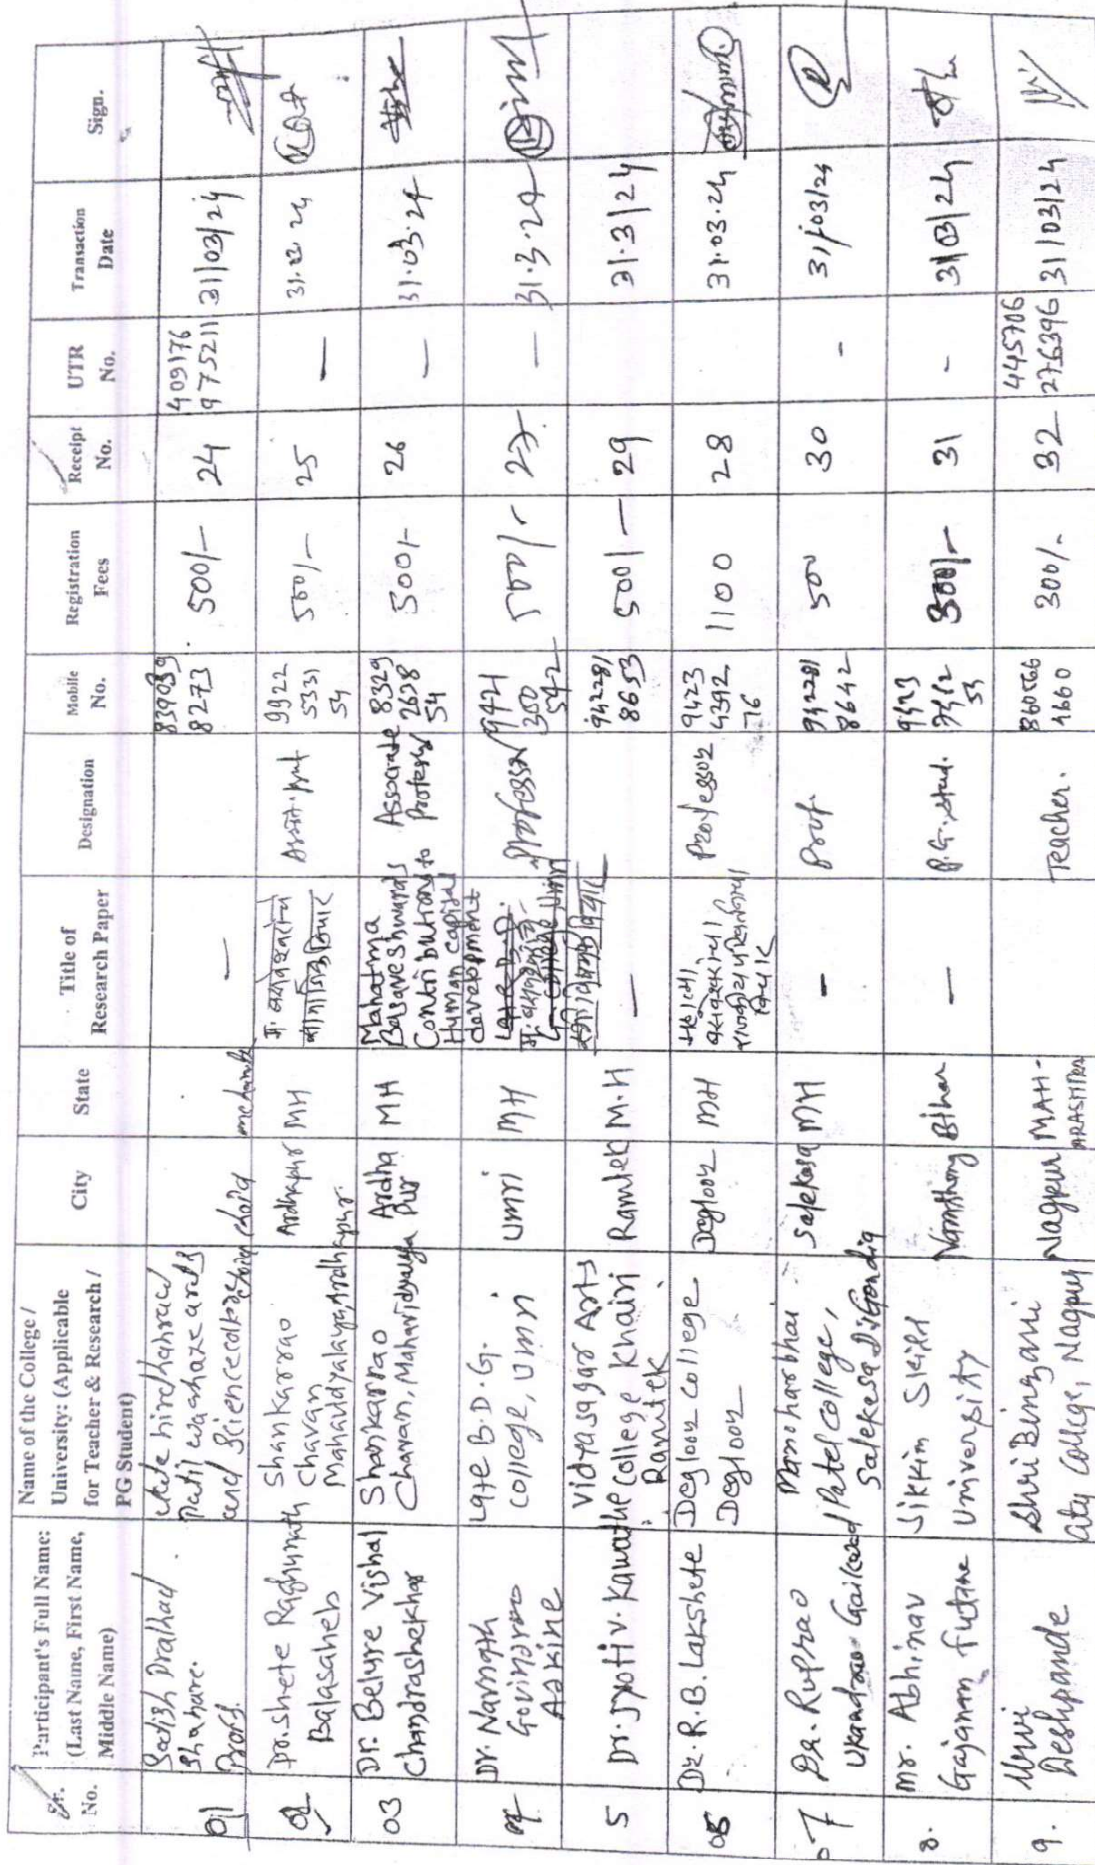 Sr. No.
Participant's Full Name: (Last Name, First Name, Middle Name)
Name of the College / University: (Applicable for Teacher & Research / PG Student)
City
State
Title of Research Paper
Designation
Mobile No.
Registration Fees
Receipt No.
UTR No.
Transaction Date
Sign.
01
Satish Pralhad
Shahare.
Prof.
Patil
arts
and Science
—
839039
8273
500/-
24
409176
975211
31/03/24
02
Dr. Shete Raghunath
Balasaheb
Shankarrao
Chavan
Mahavidyalaya, Ardhapur
Ardhapur
MH
Assit. Prof
9922
5331
54
500/-
25
—
31.03.24
03
Dr. Belure Vishal
Chandrashekhar
Shankarrao
Chavan, Mahavidyalaya
Ardha
Pur
MH
Mahatma
Basaveshwara's
Contributions to
Human capital
development
Associate
Professor
8329
2638
54
500/-
26
—
31.03.24
04
Dr. Navnath
Govindrao
Adkine
Late B.D.G.
college, Umri
Umri
MH
Professor
9421
300
542
500/-
27
—
31.3.24
5
Dr. Jyoti V. Kawathe
Vidyasagar Arts
College Khairi
Ramtek
Ramtek
M.H
—
942281
8653
500/-
29
31.3/24
06
Dr. R. B. Lakshete
Degloor College
Degloor
Degloor
MH
Professor
9423
4392
76
1100
28
31.03.24
07
Dr. Ruprao
Ukandrao Gaikwad
Manoharbhai
Patel College,
Salekesa Di Gondia
Salekasa
MH
-
Prof.
942281
8642
500
30
-
31/03/24
8.
Mr. Abhinav
Gajanan Futane
Sikkim Skill
University
Namthang
Bihar
—
P.G. Stud.
53
300/-
31
-
31/03/24
9.
Urvi
Deshpande
Shri Binzani
City College, Nagpur
Nagpur
MAH-
ARASHTRA
Teacher.
860566
4660
300/-
32
445706
276396
31/03/24